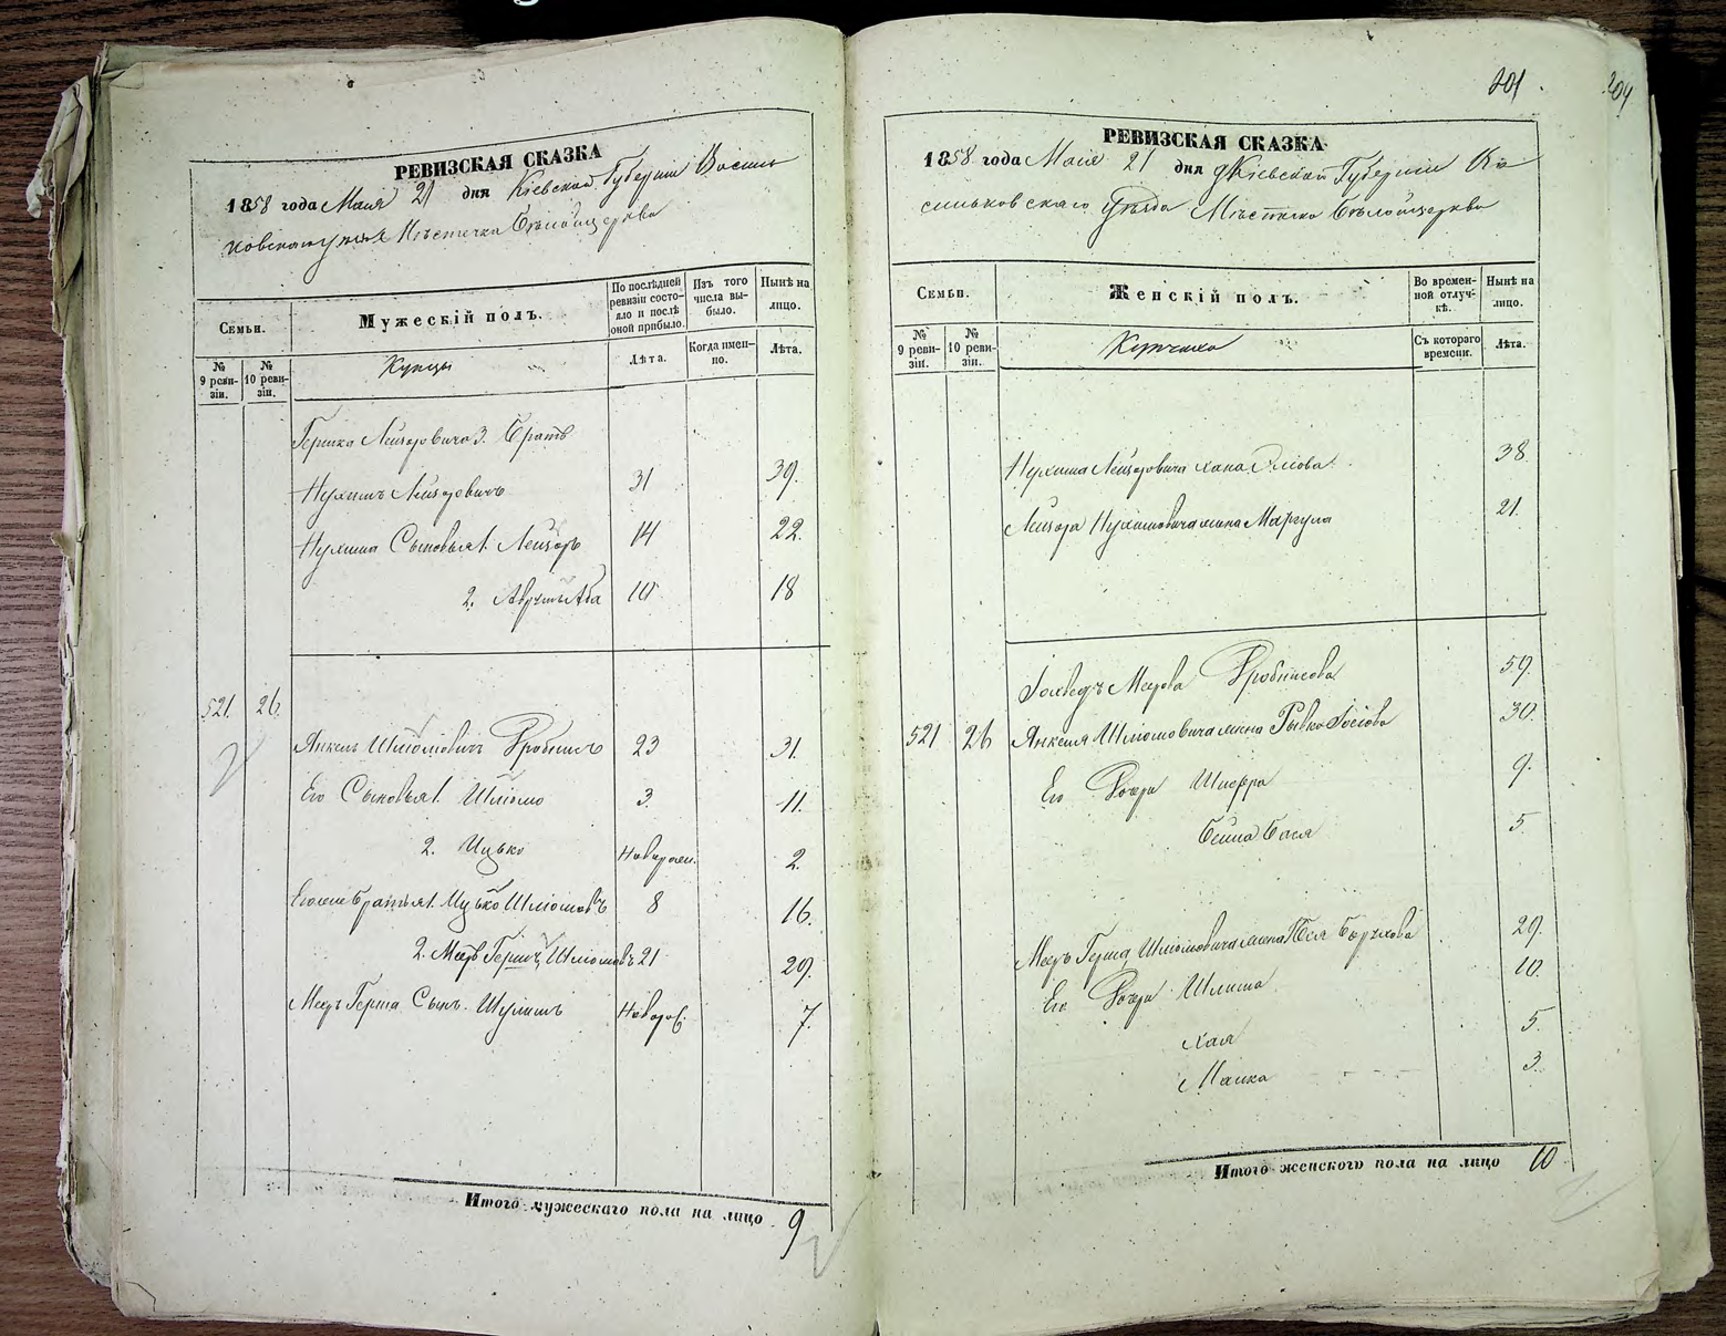 РЕВИЗСКАЯ СКАЗКА
1858 года Маія 21 дня Кіевской Губерніи Василь
ковскаго уѣзда Мѣстечка Бѣлойцеркви
Семьи.
Мужескій полъ.
По послѣдней ревизіи состояло и послѣ оной прибыло.
Изъ того числа выбыло.
Нынѣ на лицо.
№ 9 ревизіи.
№ 10 ревизіи.
Купцы
Лѣта.
Когда именно.
Лѣта.
Гершка Лейзоровича 3. Братъ
Нухимъ Лейзоровичъ 31 39.
Нухима Сыновья 1. Лейзоръ 14 22.
2. Аврумъ Аба 10 18
521. 26.
Янкель Шліомовичъ Дробишъ 23 31.
Его Сыновья 1. Шліомо 3. 11.
2. Ицько Новорожд. 2.
Его же братья 1. Ицько Шліомовъ 8 16.
2. Меръ Гершъ Шліомовъ 21 29.
Меръ Герша Сынъ Шулимъ Новорож. 7.
Итого мужескаго пола на лицо 9
201.
204
РЕВИЗСКАЯ СКАЗКА
1858 года Маія 21 дня Кіевской Губерніи Ва
сильковскаго Уѣзда Мѣстечка Бѣлойцеркви
Семьи.
Женскій полъ.
Во временной отлучкѣ.
Нынѣ на лицо.
№ 9 ревизіи.
№ 10 ревизіи.
Купчихи
Съ котораго времени.
Лѣта.
Нухима Лейзоровича Хана 38.
Лейзора Нухимовича жена Маргуля 21.
Меерова Дробишова 59.
521 26 Янкеля Шліомовича жена Рывка Іосіова 30.
Его Дочери Шифра 9.
Бейла Бася 5.
Меръ Герша Шліомовича жена Борухова 29.
Его Дочери 10.
Хая 5.
Малка 3.
Итого женского пола на лицо 10